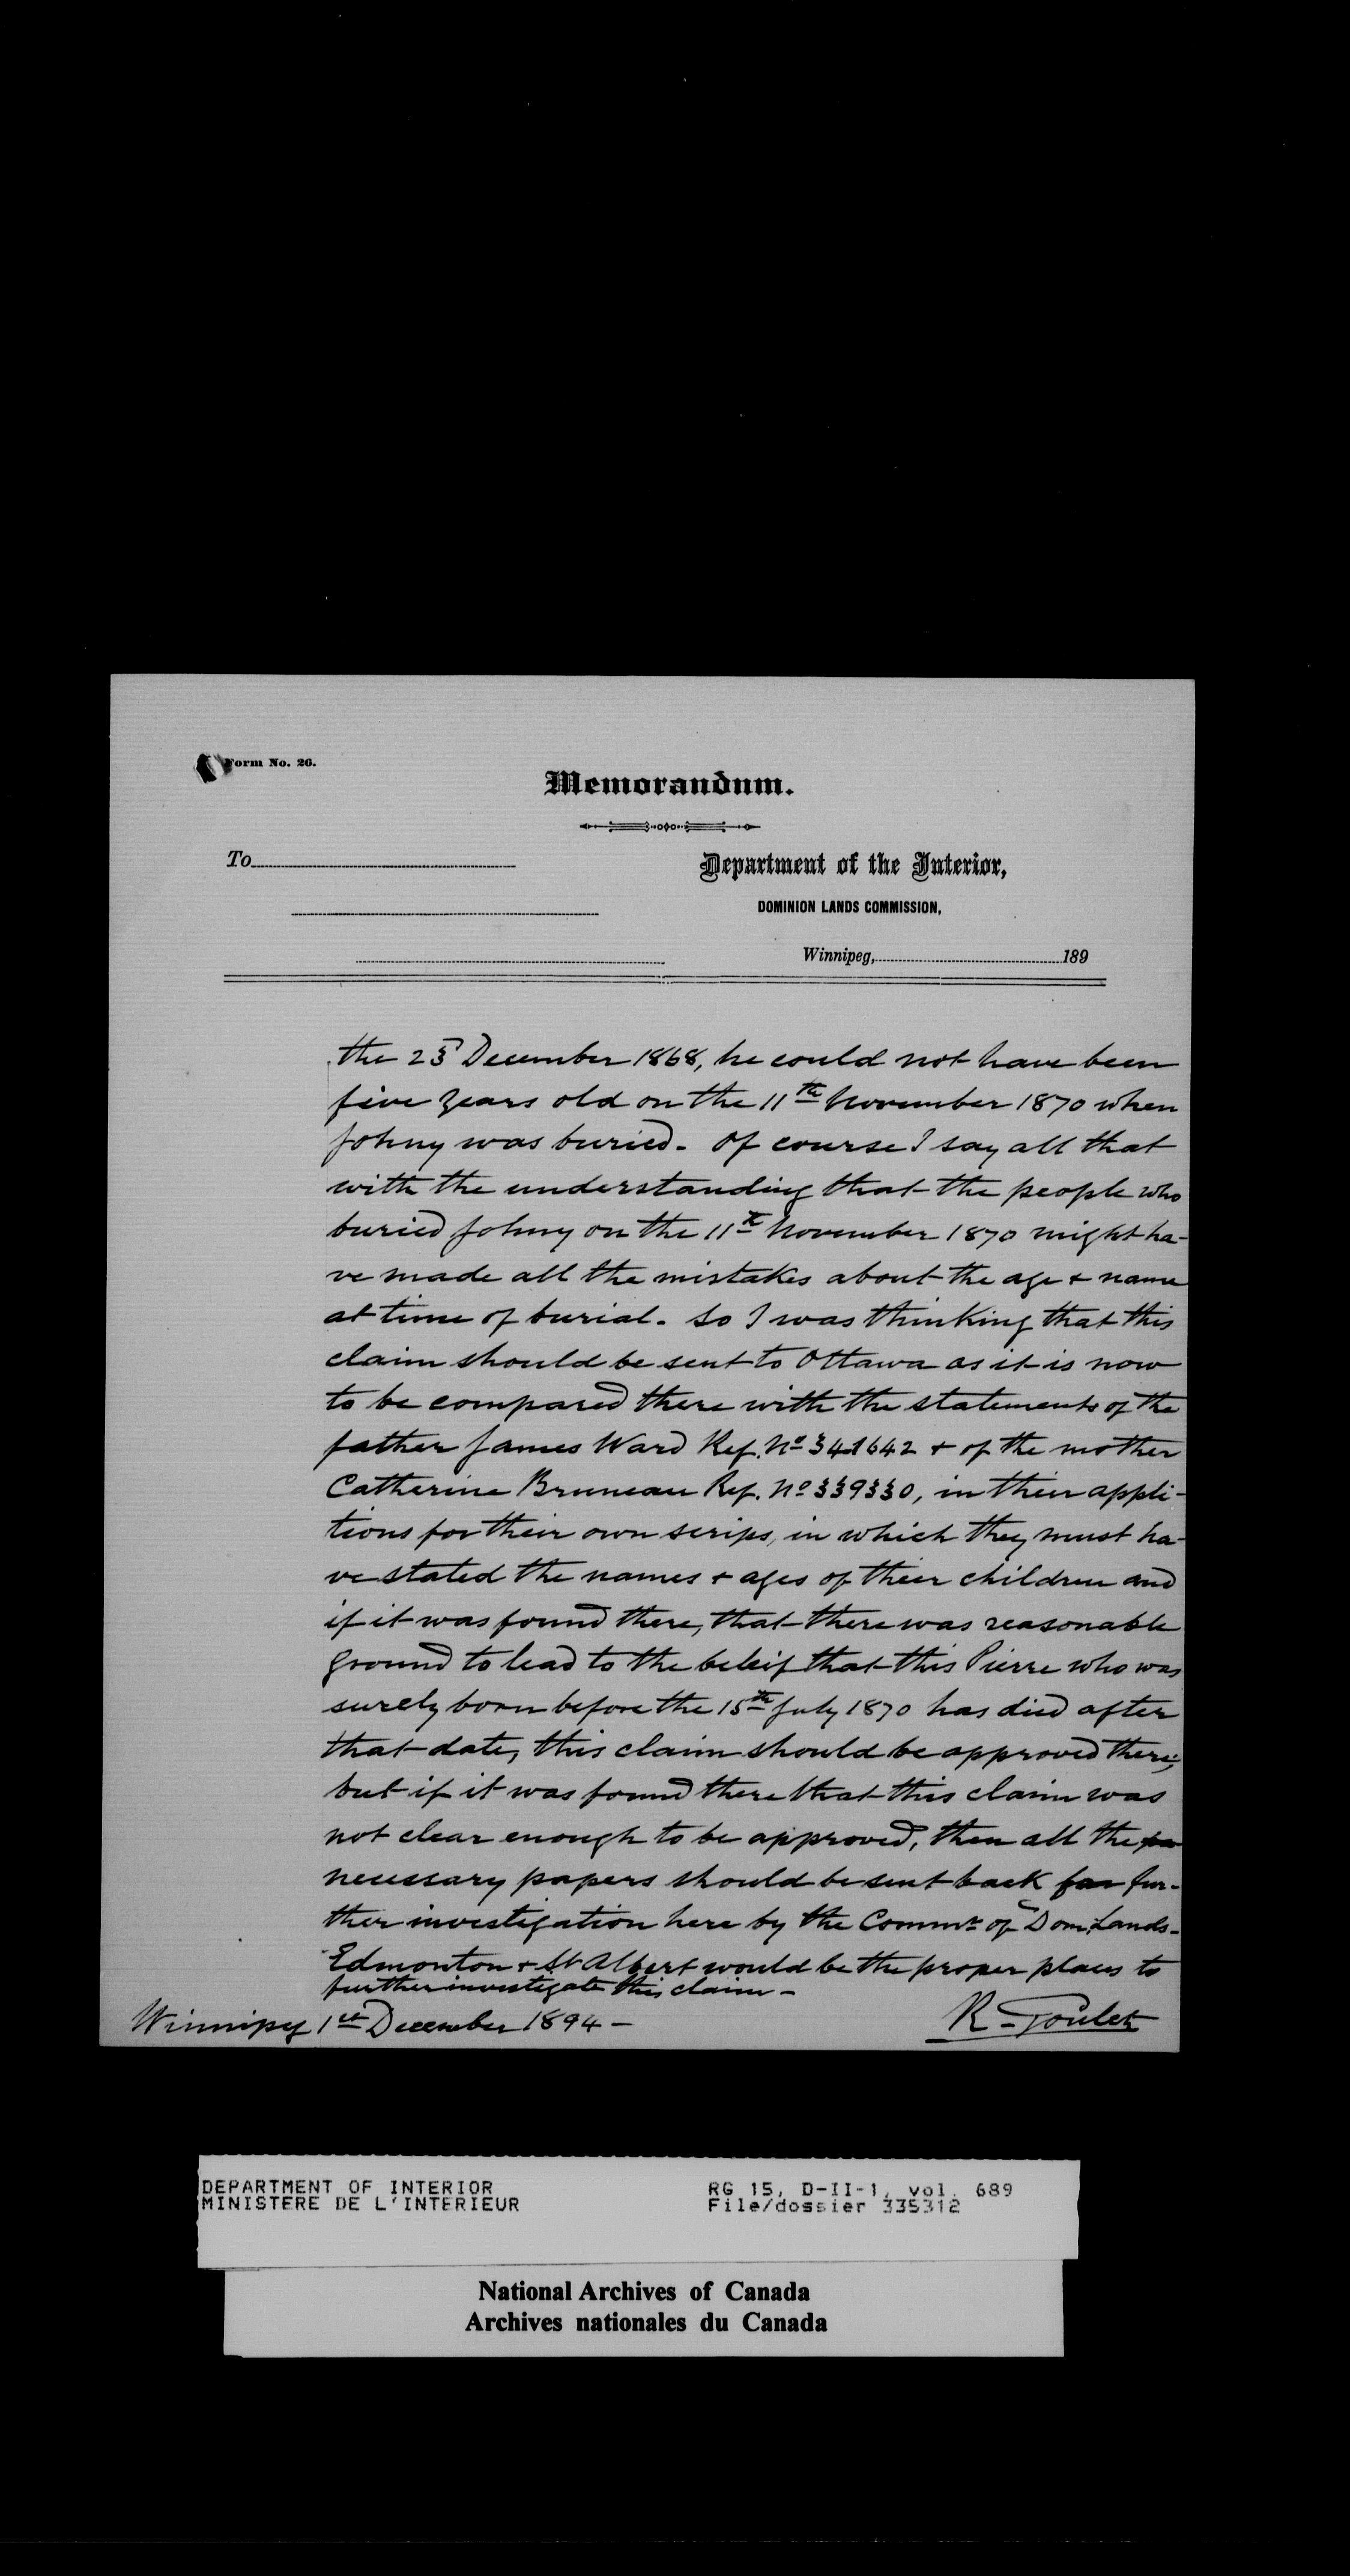 Form No. 26.
Memorandum.
To
Department of the Interior,
DOMINION LANDS COMMISSION,
Winnipeg, 189
the 23d December 1868, he could not have been
five years old on the 11th November 1870 when
Johny was buried. Of course I say all that
with the understanding that the people who
buried Johny on the 11th November 1870 might ha-
ve made all the mistakes about the age + name
at time of burial. So I was thinking that this
claim should be sent to Ottawa as it is now
to be compared there with the statements of the
father James Ward Ref. No 341642 + of the mother
Catherine Bruneau Ref. No 339330, in their appli-
tions for their own scrips, in which they must ha-
ve stated the names + ages of their children and
if it was found there, that there was reasonable
ground to lead to the beleif that this Pierre who was
surely born before the 15th July 1870 has died after
that date, this claim should be approved there;
but if it was found there that this claim was
not clear enough to be approved, then all the
necessary papers should be sent back for fur-
ther investigation here by the Commr of Dom. Lands-
Edmonton + St Albert would be the proper places to
further investigate this claim -
Winnipeg 1st December 1894 -
R. Goulet
DEPARTMENT OF INTERIOR
MINISTERE DE L'INTERIEUR
RG 15, D-II-1, vol. 689
File/dossier 335312
National Archives of Canada
Archives nationales du Canada